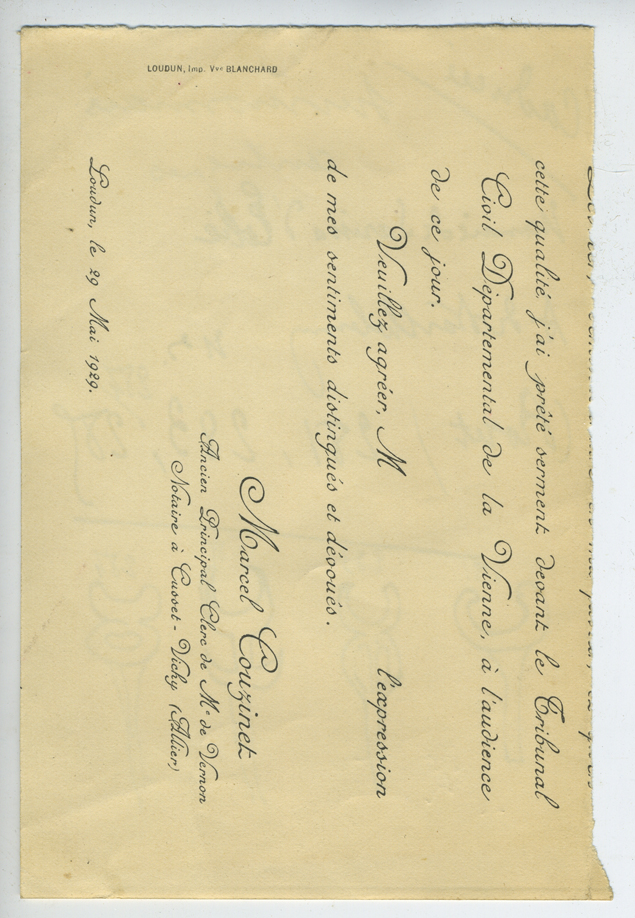 cette qualité, j'ai prêté serment devant le Tribunal
Civil Départemental de la Vienne, à l'audience
de ce jour.
Veuillez agréer, M l'expression
de mes sentiments distingués et dévoués.
Marcel Couzinet
Ancien Principal Clerc de Me de Vernon
Notaire à Cusset - Vichy (Allier)
Loudun, le 29 Mai 1929.
LOUDUN, Imp. Vve BLANCHARD